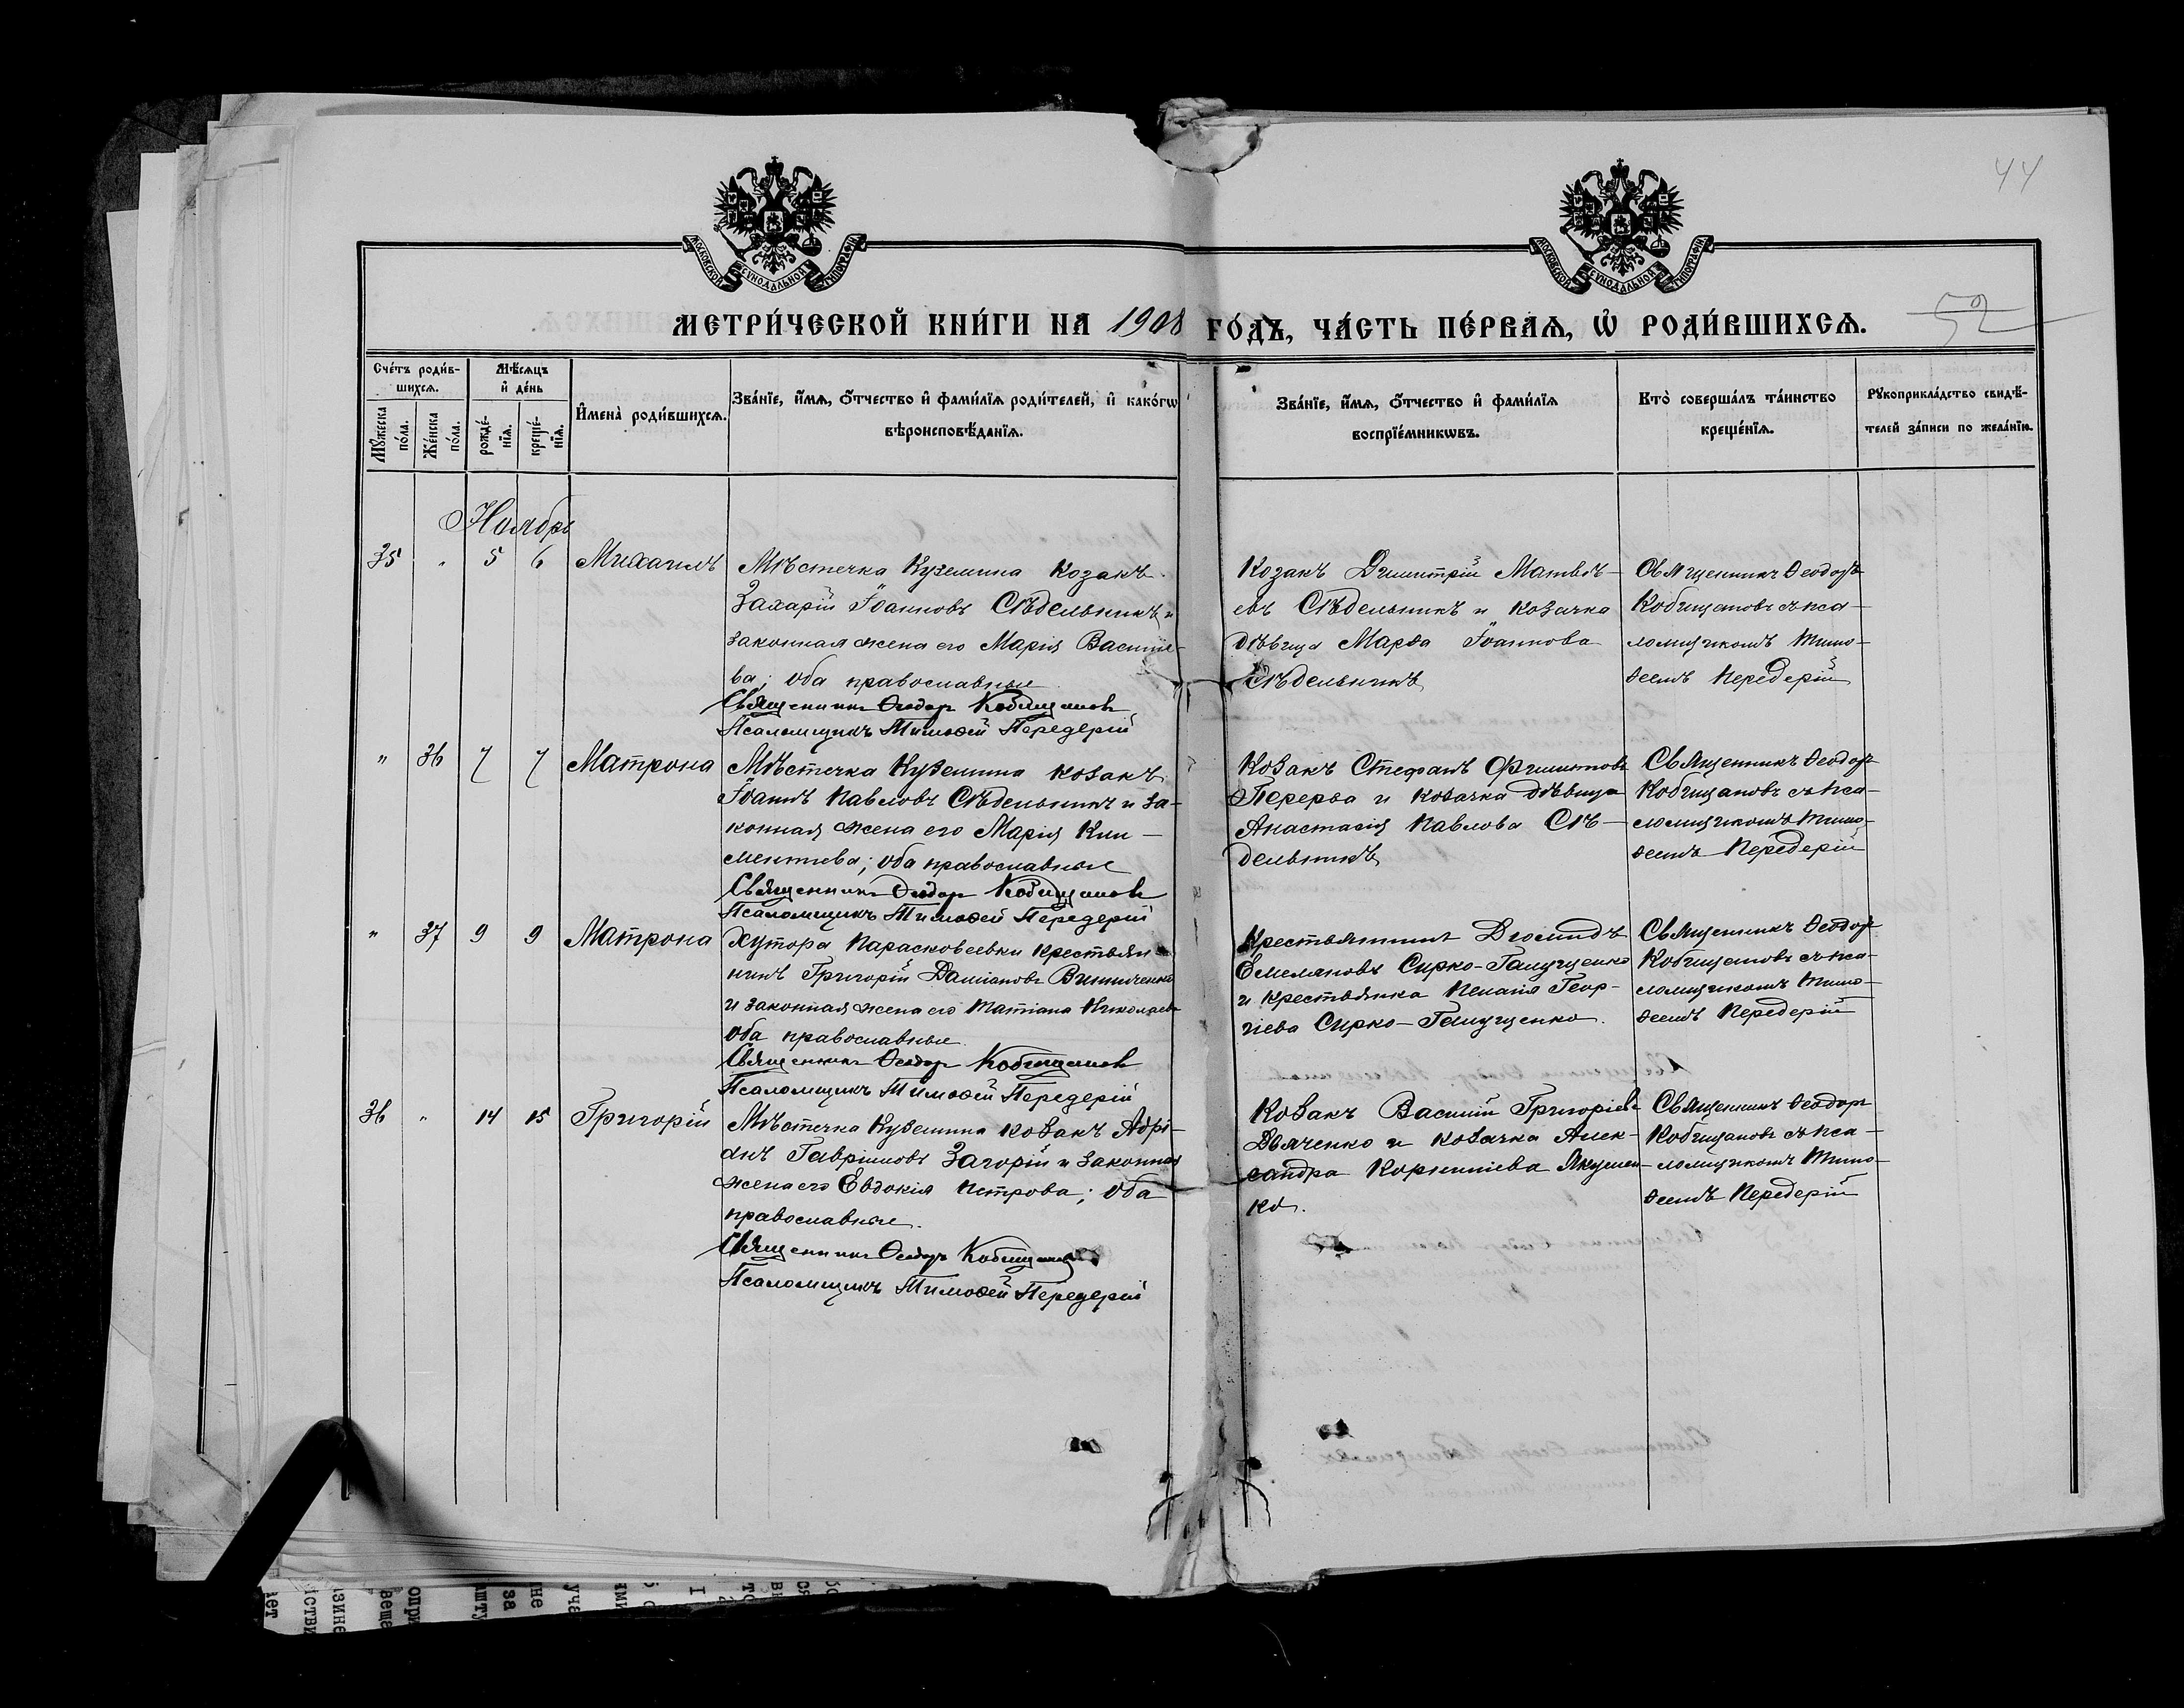 44
МОСКОВСКОЙ СѴНОДАЛЬНОЙ ТИПОГРАФІИ
МОСКОВСКОЙ СѴНОДАЛЬНОЙ ТИПОГРАФІИ
МЕТРИ́ЧЕСКОЙ КНИ́ГИ НА 1908 ГО́ДЪ, ЧА́СТЬ ПЕ́РВАѦ, Ѡ҆ РОДИ́ВШИХСѦ.
52
Сче́тъ роди́в-
шихсѧ.
Мꙋ́жеска по́ла.
Же́нска по́ла.
Мѣ́сѧцъ
и҆ де́нь
рожде́-
нїѧ.
креще́-
нїѧ.
И҆мена̀ роди́вшихсѧ.
Зва́нїе, и҆́мѧ, ѻ҆́тчество и҆ фами́лїѧ роди́телей, и҆ како́гѡ
вѣроисповѣ́данїѧ.
Зва́нїе, и҆́мѧ, ѻ҆́тчество и҆ фами́лїѧ
воспрїе́мникѡвъ.
Кто̀ соверша́лъ та́инство
креще́нїѧ.
Рꙋкоприкла́дство свидѣ́-
телей за́писи по жела́нїю.
Ноябрь
35 " 5 6 Михаилъ
Мѣстечка Куземина козакъ
Захарій Іоанновъ Сѣдельникъ и
законная жена его Марія Василіе-
ва; оба православные
Священникъ Ѳеодоръ Кобищановъ
Псаломщикъ Тимоѳей Передерій
Козакъ Димитрій Матвѣ-
евъ Сѣдельникъ и козачка
дѣвица Марѳа Іоаннова
Сѣдельникъ
Священникъ Ѳеодоръ
Кобищановъ съ пса-
ломщикомъ Тимо-
ѳеемъ Передерій
" 36 7 7 Матрона
Мѣстечка Куземина козакъ
Іоаннъ Павловъ Сѣдельникъ и за-
конная жена его Марія Кли-
ментіева; оба православные
Священникъ Ѳеодоръ Кобищановъ
Псаломщикъ Тимоѳей Передерій
Козакъ Стефанъ Филиповъ
Перерва и козачка дѣвица
Анастасія Павлова Сѣ-
дельникъ
Священникъ Ѳеодоръ
Кобищановъ съ пса-
ломщикомъ Тимо-
ѳеемъ Передерій
" 37 9 9 Матрона
Хутора Парасковеевки крестьян
инъ Григорій Даміановъ Винниченко
и законная жена его Татіана Николаева
оба православные
Священникъ Ѳеодоръ Кобищановъ
Псаломщикъ Тимоѳей Передерій
Крестьянинъ Діомидъ
Емеляновъ Сирко-Галущенко
и крестьянка Пелагія Геор-
гіева Сирко-Галущенко.
Священникъ Ѳеодоръ
Кобищановъ съ пса-
ломщикомъ Тимо-
ѳеемъ Передерій
36 " 14 15 Григорій
Мѣстечка Куземина козакъ Адрі-
анъ Гавріиловъ Загорій и законная
жена его Евдокія Петрова; оба
православные.
Священникъ Ѳеодоръ Кобищановъ
Псаломщикъ Тимоѳей Передерій
Козакъ Василій Григоріевъ
Дьяченко и козачка Алек-
сандра Корниліева Якушен-
ко.
Священникъ Ѳеодоръ
Кобищановъ съ пса-
ломщикомъ Тимо-
ѳеемъ Передерій